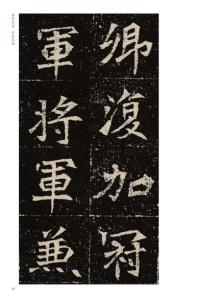 卿復加冠
軍將軍兼